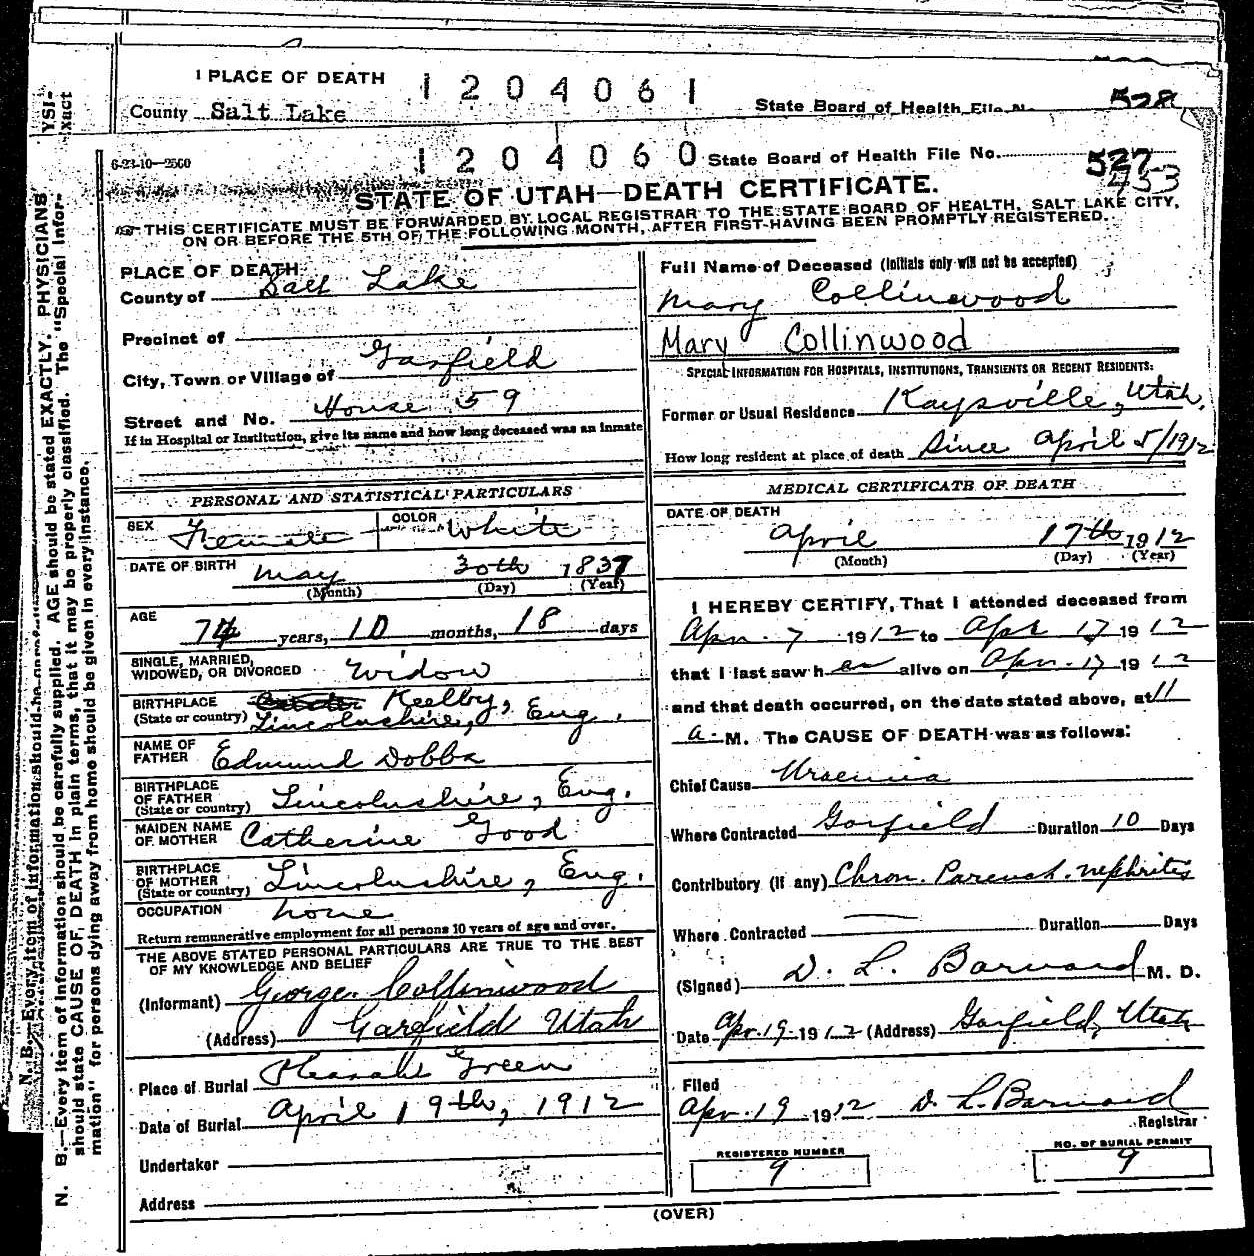 1 PLACE OF DEATH
1204061
County Salt Lake
State Board of Health File No. 528
6-23-10-2500
1204060
State Board of Health File No. 527
453
STATE OF UTAH—DEATH CERTIFICATE.
THIS CERTIFICATE MUST BE FORWARDED BY LOCAL REGISTRAR TO THE STATE BOARD OF HEALTH, SALT LAKE CITY,
ON OR BEFORE THE 5TH OF THE FOLLOWING MONTH, AFTER FIRST HAVING BEEN PROMPTLY REGISTERED.
PLACE OF DEATH
County of Salt Lake
Precinct of
City, Town or Village of Garfield
Street and No. House 59
If in Hospital or Institution, give its name and how long deceased was an inmate
Full Name of Deceased (Initials only will not be accepted)
Mary Collinwood
Mary Collinwood
SPECIAL INFORMATION FOR HOSPITALS, INSTITUTIONS, TRANSIENTS OR RECENT RESIDENTS:
Former or Usual Residence Kaysville, Utah.
How long resident at place of death Since April 5/1912
PERSONAL AND STATISTICAL PARTICULARS
SEX Female COLOR White
DATE OF BIRTH May 30th 1837
(Month) (Day) (Year)
AGE 74 years, 10 months, 18 days
SINGLE, MARRIED,
WIDOWED, OR DIVORCED Widow
BIRTHPLACE Keelby,
(State or country) Lincolnshire, Eng.
NAME OF
FATHER Edmund Dobbs
BIRTHPLACE
OF FATHER
(State or country) Lincolnshire, Eng.
MAIDEN NAME
OF MOTHER Catherine Good
BIRTHPLACE
OF MOTHER
(State or country) Lincolnshire, Eng.
OCCUPATION none
Return remunerative employment for all persons 10 years of age and over.
THE ABOVE STATED PERSONAL PARTICULARS ARE TRUE TO THE BEST
OF MY KNOWLEDGE AND BELIEF
(Informant) George Collinwood
(Address) Garfield Utah
Place of Burial Pleasant Green
Date of Burial April 19th, 1912
Undertaker
Address
MEDICAL CERTIFICATE OF DEATH
DATE OF DEATH
April 17th 1912
(Month) (Day) (Year)
I HEREBY CERTIFY, That I attended deceased from
Apr. 7 1912 to Apr. 17 1912
that I last saw her alive on Apr. 17 1912
and that death occurred, on the date stated above, at 11
a. M. The CAUSE OF DEATH was as follows:
Chief Cause Uraemia
Where Contracted Garfield Duration 10 Days
Contributory (if any) Chron. Parench. nephritis
Where Contracted — Duration Days
(Signed) D. L. Barnard M. D.
Date Apr. 19 1912 (Address) Garfield, Utah
Filed
Apr. 19 1912 D. L. Barnard
Registrar
REGISTERED NUMBER
9
NO. OF BURIAL PERMIT
9
(OVER)
YSI-
xact
N. B.—Every item of information should be
N. B.—Every item of information should be carefully supplied. AGE should be stated EXACTLY. PHYSICIANS
should state CAUSE OF DEATH in plain terms, that it may be properly classified. The "Special Infor-
mation" for persons dying away from home should be given in every instance.